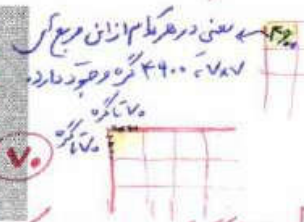 ۴۹۰۰
یعنی در هر کدام از این مربع های
۷×۷، ۴۹۰۰ گره وجود دارد.
۷۰ تا گره
۷۰ تا گره
۷۰